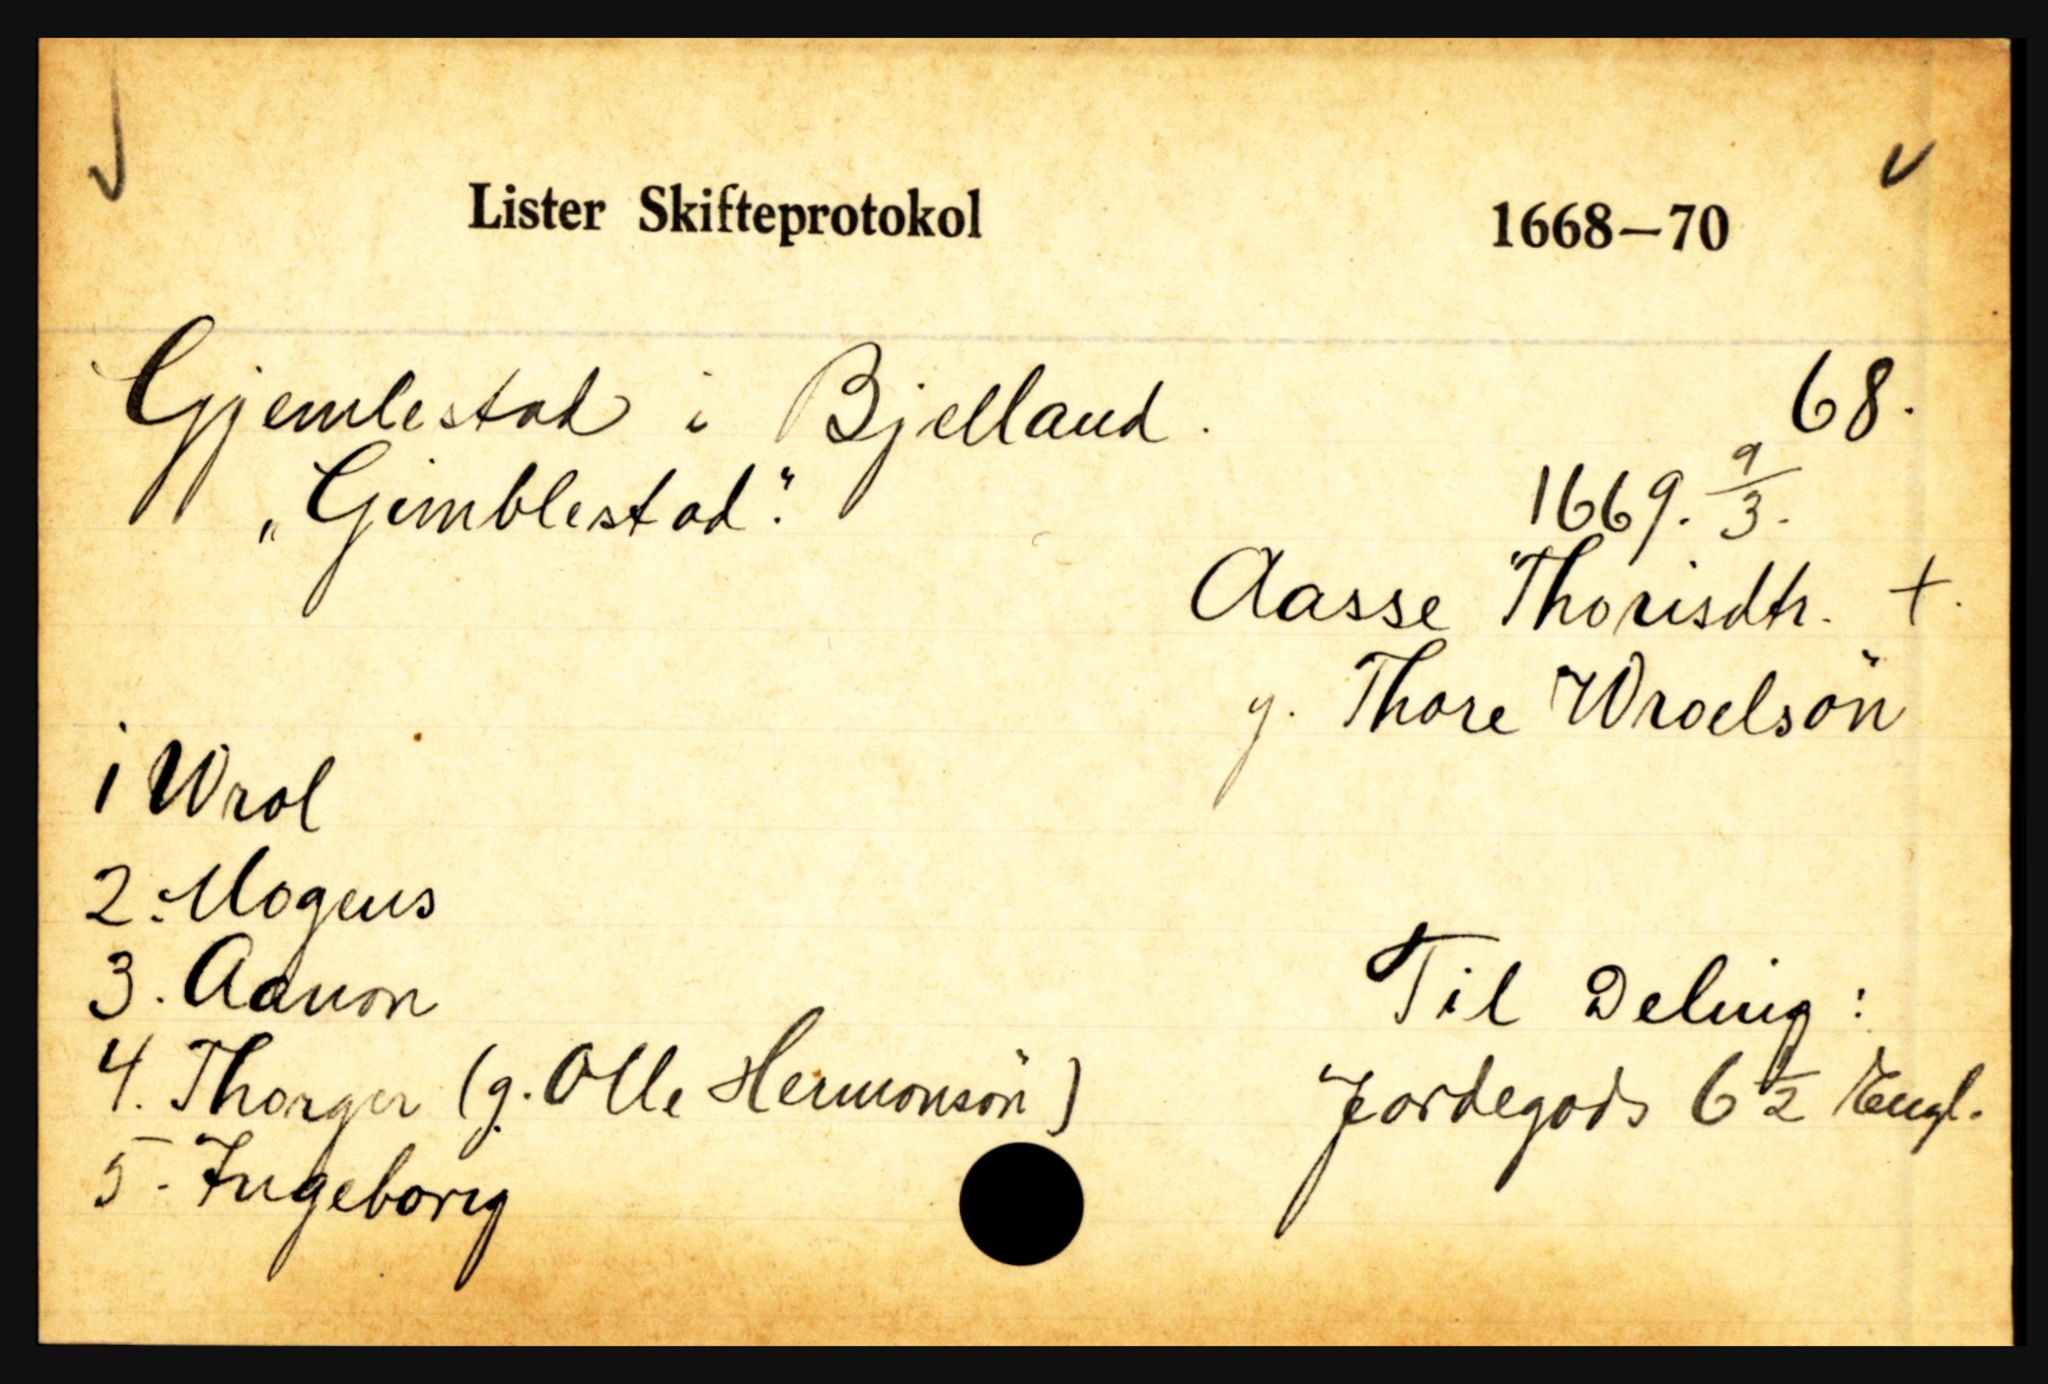 Lister Skifteprotokol 1668—70
Gjemlestad i Bjelland. 68.
„Gimblestad". 1669. 9/3.
Aasse Thorisdtr. +.
g. Thore Wroelsön
1 Wrol
2. Mogens
3. Aanon
4. Thorger (g. Olle Hermonsön)
5. Ingeborig
Til Deling:
Jordegods 6 1/2 Engl.